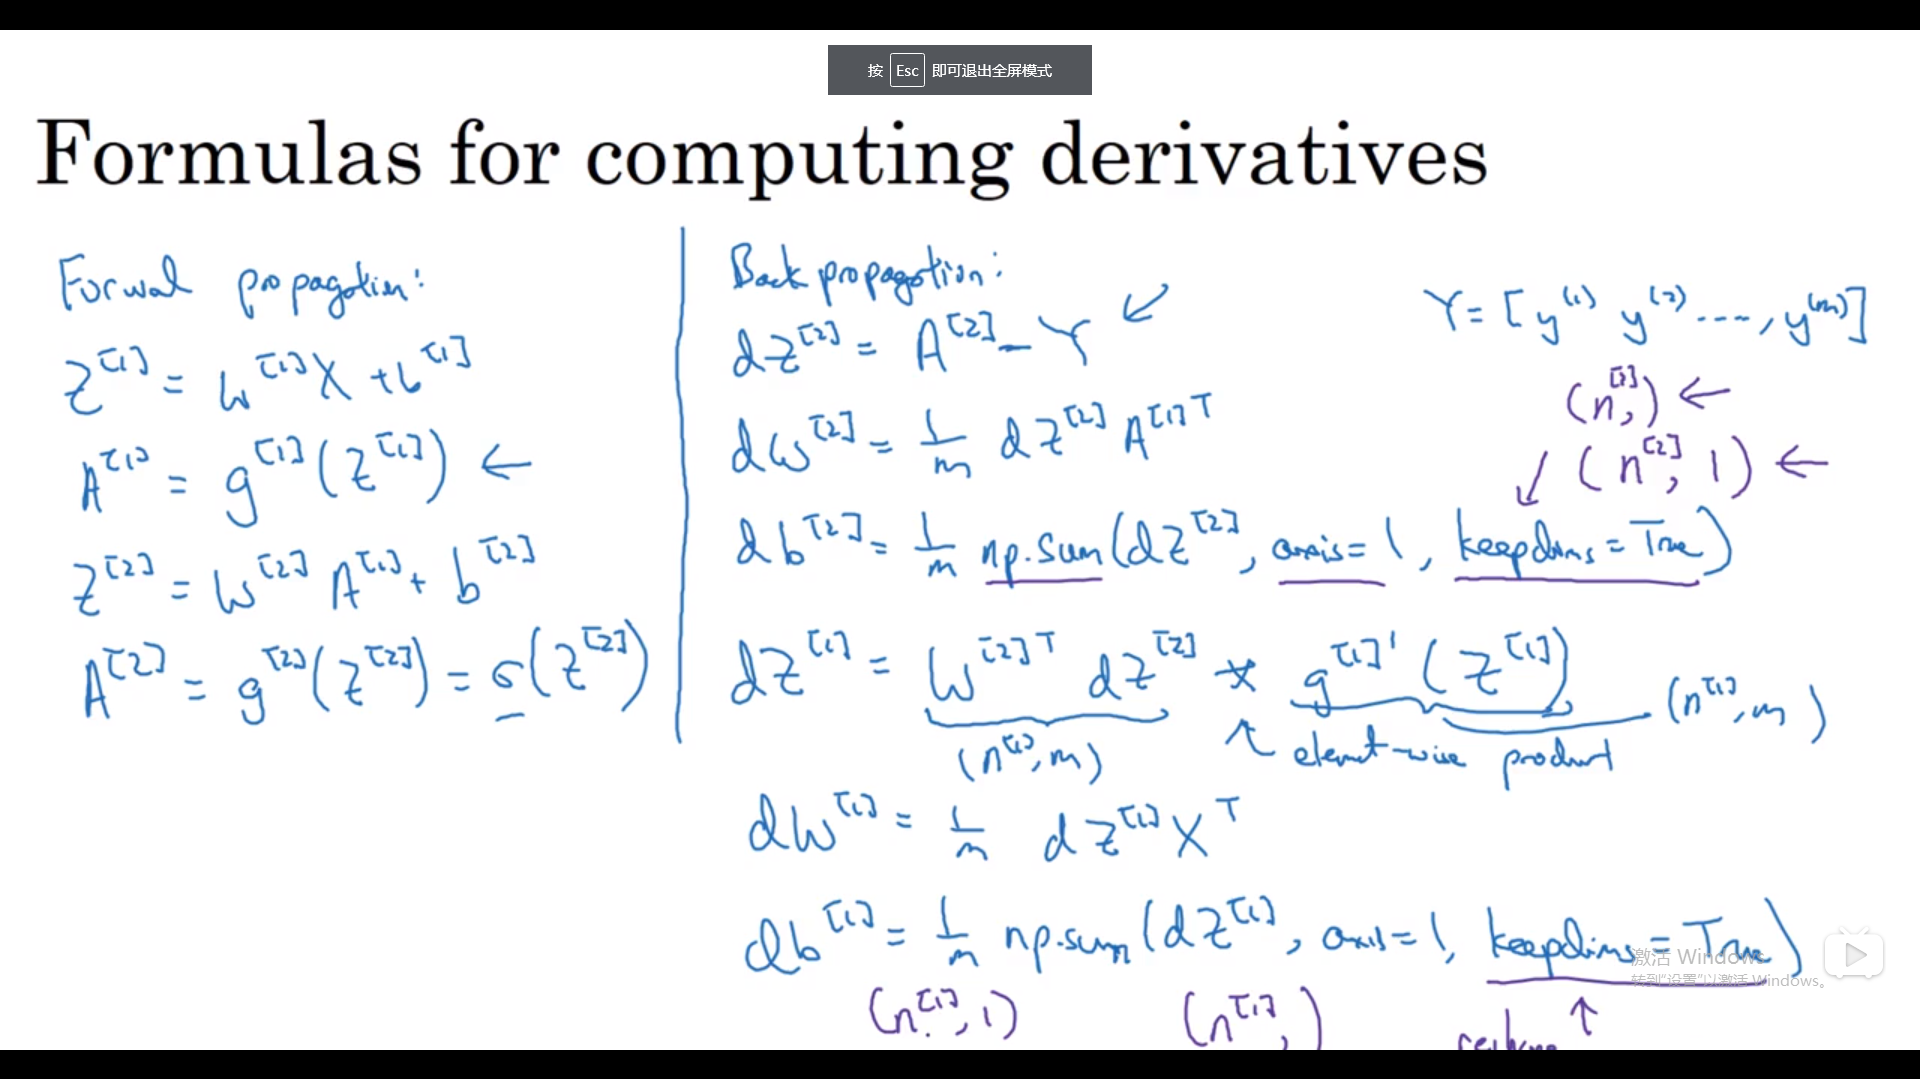 按 Esc 即可退出全屏模式
Formulas for computing derivatives
Forwal propagation:
Z^[1] = W^[1]X + b^[1]
A^[1] = g^[1](Z^[1]) ←
Z^[2] = W^[2] A^[1] + b^[2]
A^[2] = g^[2](Z^[2]) = σ(Z^[2])
Back propagation:
dZ^[2] = A^[2] - Y ↙
dW^[2] = 1/m dZ^[2] A^[1]T
db^[2] = 1/m np.sum(dZ^[2], axis=1, keepdims=True)
dZ^[1] = W^[2]T dZ^[2] * g^[1]'(Z^[1])
(n^[1], m)
↑ element-wise product
(n^[1], m)
dW^[1] = 1/m dZ^[1] X^T
db^[1] = 1/m np.sum(dZ^[1], axis=1, keepdims=True)
(n^[1], 1) (n^[1],) ↑
Y = [y^(1) y^(2) ..., y^(m)]
(n^[2],) ←
↙ (n^[2], 1) ←
激活 Windows
转到“设置”以激活 Windows。